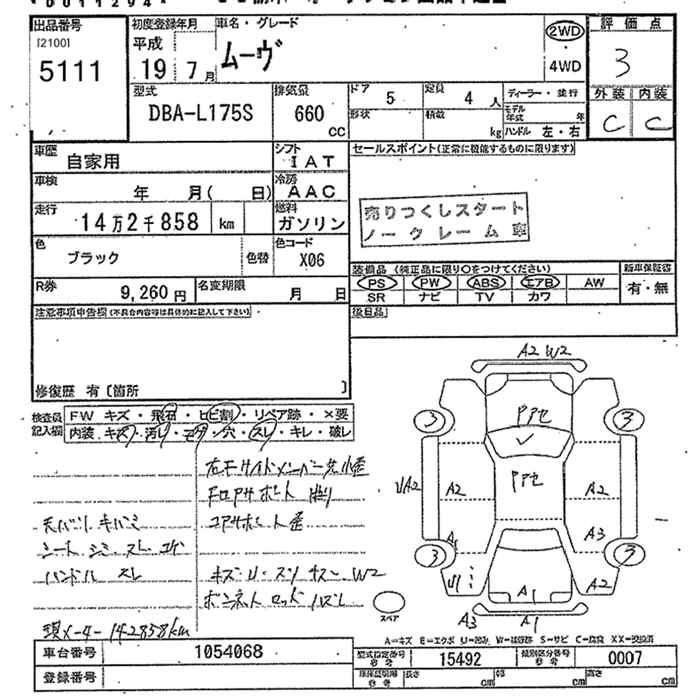 出品番号
[2100]
5111
初度登録年月
平成
19年7月
車名・グレード
ムーヴ
2WD
4WD
評価点
3
外装 内装
C C
型式
DBA-L175S
排気量
660
CC
ドア 5
定員 4 人
形状
積載 kg
ディーラー・並行
モデル年式 年
ハンドル 左・右
車歴
自家用
シフト
IAT
セールスポイント(正常に機能するものに限ります)
車検
年 月( 日)
冷房
AAC
走行
14万2千858 km
燃料
ガソリン
売りつくしスタート
ノークレーム車
色
ブラック
色替
色コード
X06
R券
9,260円
名変期限
月 日
装備品 (純正品に限り○をつけてください)
PS PW ABS エアB AW
SR ナビ TV カワ
新車保証書
有・無
注意事項申告欄(不具合内容等は具体的に記入して下さい)
後日品
修復歴 有〔箇所 〕
検査員記入欄
FW キズ・飛石・ヒビ割・リペア跡・×要
内装 キズ・汚れ・コゲ・穴・スレ・キレ・破レ
天バリ キバミ
シート シミ スレ コゲ
ハンドル スレ
現メーター 142858km
A2 W2
3
3
PPセ
PPセ
A2
A2
A2
A1
A3
3
3
A2
A3
A1
A1
スペア
A=キズ E=エクボ U=凹み W=補修跡 S=サビ C=腐食 XX=交換済
車台番号
1054068
型式指定番号
参考
15492
類別区分番号
参考
0007
登録番号
長さ cm
幅 cm
高さ cm